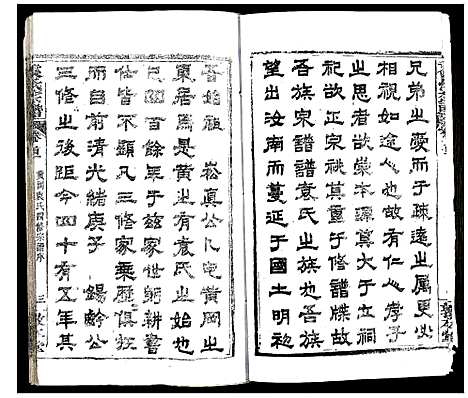 兄弟之妻而于疎遠之屬更必
相視如途人也故有仁人孝子
之思者欲崇本源莫大于立祠
祀欲正宗祊莫重于修譜牒故
吾族宗譜譜袁氏之族也吾族
望出汝南而蔓延于國土明初
吾始祖 崧真公卜宅黄岡
東居焉是為有袁氏之始也
已四百餘年于茲矣躬耕書
仕皆不顯凡三修家乘歷俱
而自前清光緒庚子 錫齡公
三修之後距今四十有五年其
袁氏宗譜 卷首
黄岡袁氏四修宗譜序
三